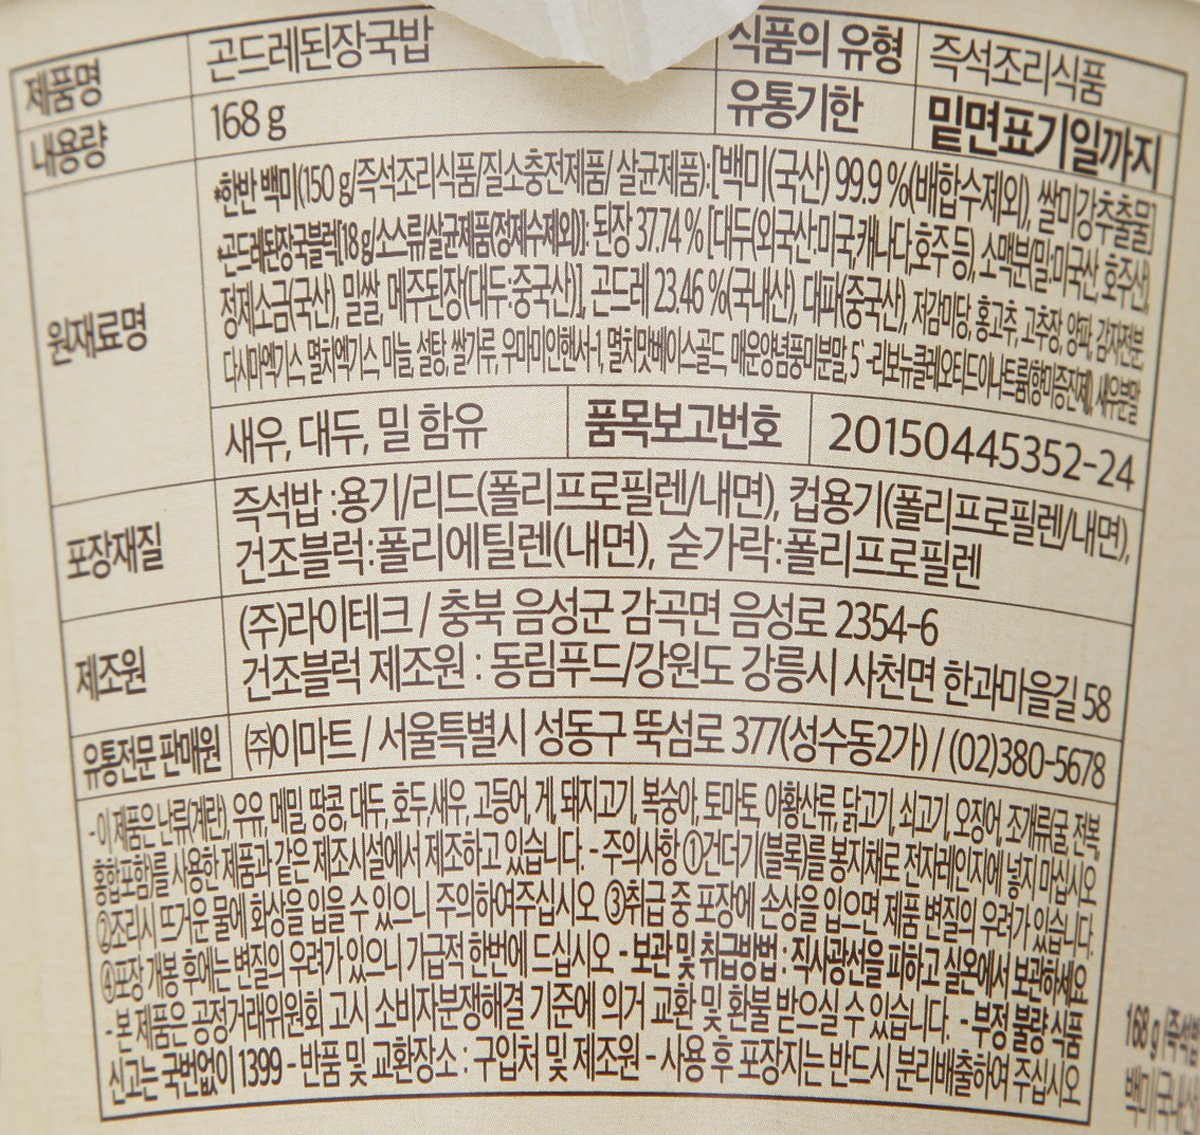 제품명 곤드레된장국밥 식품의 유형 즉석조리식품
내용량 168 g 유통기한 밑면표기일까지
원재료명
*한반 백미(150 g/즉석조리식품/질소충전제품/ 살균제품):[백미(국산) 99.9 %(배합수제외), 쌀미강추출물]
*곤드레된장국블럭[18 g/소스류/살균제품(정제수제외)]: 된장 37.74 % [대두(외국산:미국,캐나다,호주 등), 소맥분(밀:미국산, 호주산),
정제소금(국산), 밀쌀, 메주된장(대두:중국산)], 곤드레 23.46 %(국내산), 대파(중국산), 저감미당, 홍고추, 고추장, 양파, 감자전분,
다시마엑기스, 멸치엑기스, 마늘, 설탕, 쌀가루, 우마미인핸서-1, 멸치맛베이스골드, 매운양념풍미분말, 5`-리보뉴클레오티드이나트륨(향미증진제), 새우분말
새우, 대두, 밀 함유 품목보고번호 20150445352-24
포장재질 즉석밥 :용기/리드(폴리프로필렌/내면), 컵용기(폴리프로필렌/내면),
건조블럭:폴리에틸렌(내면), 숟가락:폴리프로필렌
제조원 (주)라이테크 / 충북 음성군 감곡면 음성로 2354-6
건조블럭 제조원 : 동림푸드/강원도 강릉시 사천면 한과마을길 58
유통전문 판매원 ㈜이마트 / 서울특별시 성동구 뚝섬로 377(성수동2가) / (02)380-5678
- 이 제품은 난류(계란), 우유, 메밀, 땅콩, 대두, 호두, 새우, 고등어, 게, 돼지고기, 복숭아, 토마토, 아황산류, 닭고기, 쇠고기, 오징어, 조개류(굴, 전복,
홍합포함)를 사용한 제품과 같은 제조시설에서 제조하고 있습니다. - 주의사항 ①건더기(블록)를 봉지째로 전자레인지에 넣지 마십시오
②조리시 뜨거운 물에 화상을 입을 수 있으니 주의하여주십시오 ③취급 중 포장에 손상을 입으면 제품 변질의 우려가 있습니다.
④포장 개봉 후에는 변질의 우려가 있으니 가급적 한번에 드십시오 - 보관 및 취급방법 : 직사광선을 피하고 실온에서 보관하세요
- 본 제품은 공정거래위원회 고시 소비자분쟁해결 기준에 의거 교환 및 환불 받으실 수 있습니다. - 부정 불량 식품
신고는 국번없이 1399 - 반품 및 교환장소 : 구입처 및 제조원 - 사용 후 포장지는 반드시 분리배출하여 주십시오
168 g